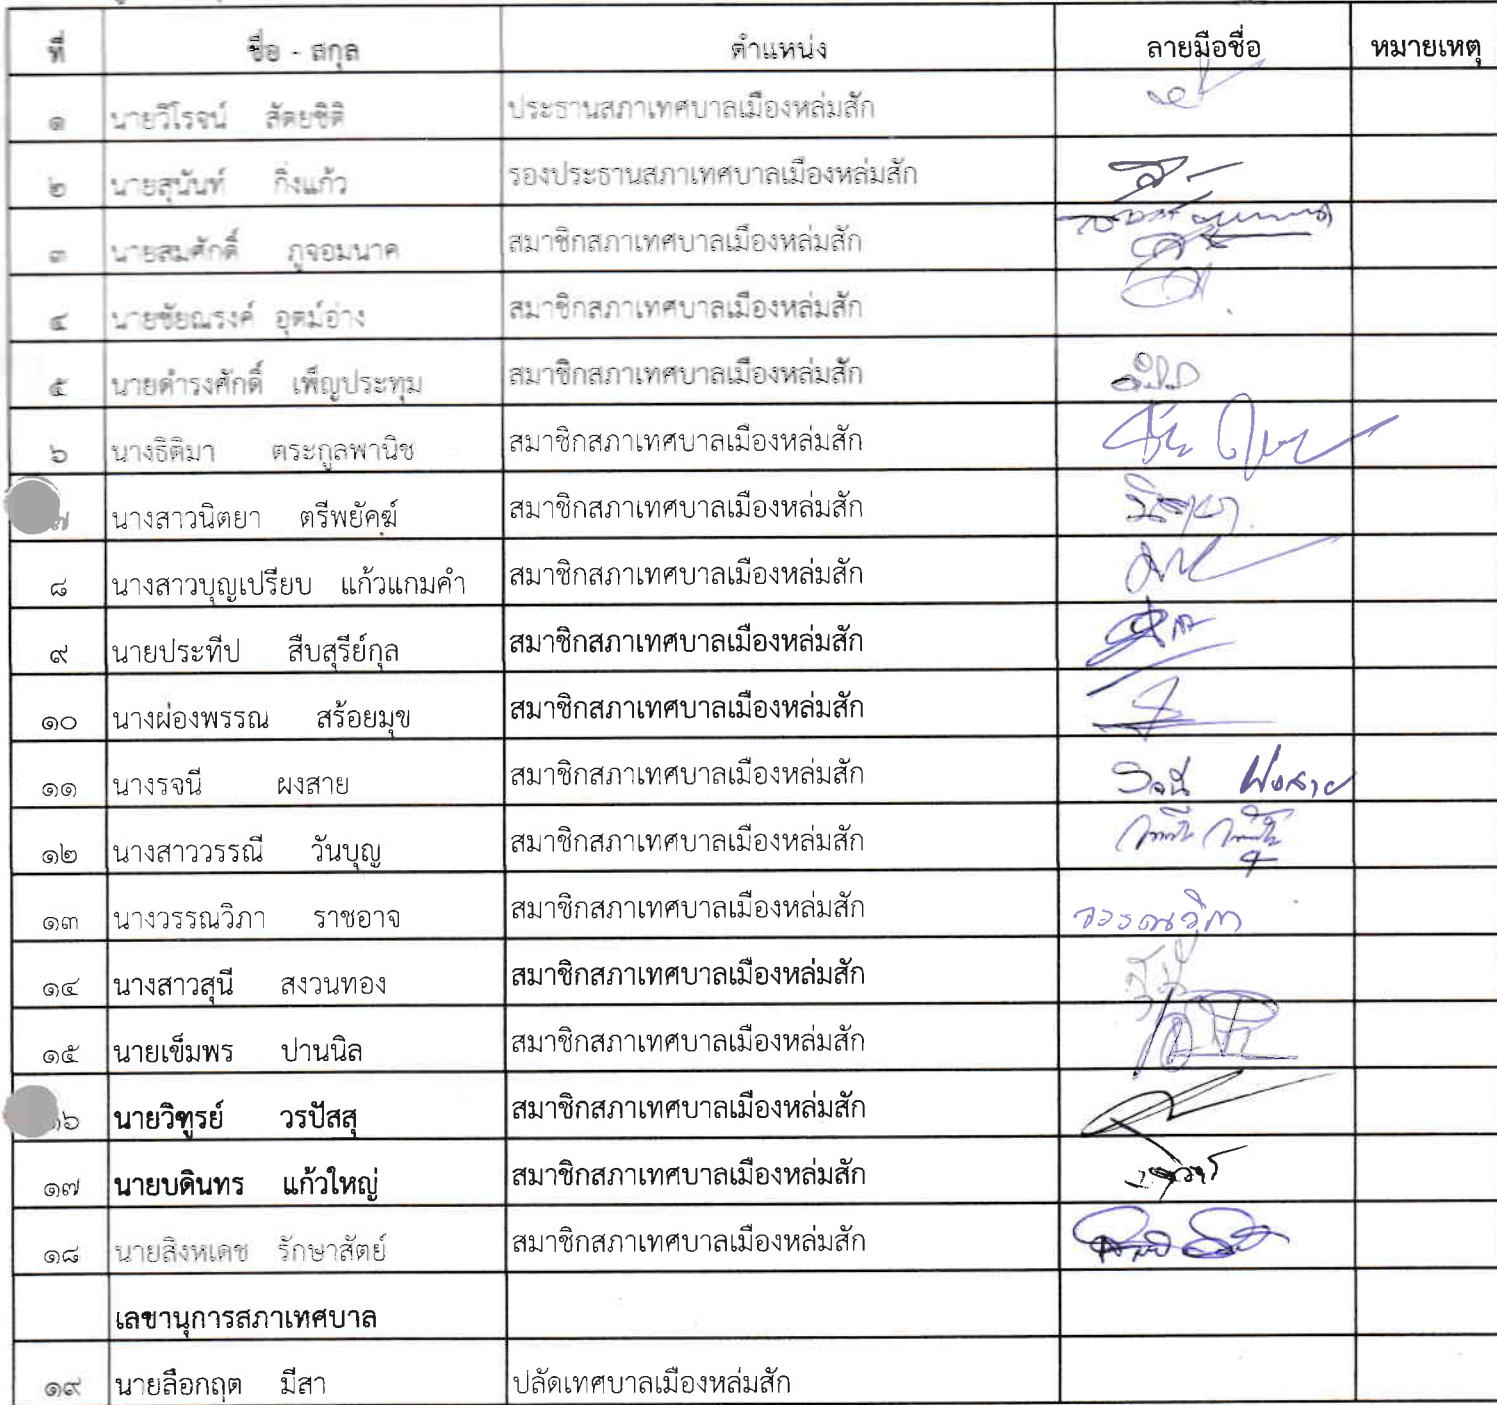 ที่ ชื่อ - สกุล ตำแหน่ง ลายมือชื่อ หมายเหตุ
๑ นายวิโรจน์ สัตยชิติ ประธานสภาเทศบาลเมืองหล่มสัก
๒ นายสุนันท์ กิ่งแก้ว รองประธานสภาเทศบาลเมืองหล่มสัก
๓ นายสมศักดิ์ ภูจอมนาค สมาชิกสภาเทศบาลเมืองหล่มสัก
๔ นายชัยณรงค์ อุตม์อ่าง สมาชิกสภาเทศบาลเมืองหล่มสัก
๕ นายดำรงศักดิ์ เพ็ญประทุม สมาชิกสภาเทศบาลเมืองหล่มสัก
๖ นางธิติมา ตระกูลพานิช สมาชิกสภาเทศบาลเมืองหล่มสัก
๗ นางสาวนิตยา ตรีพยัคฆ์ สมาชิกสภาเทศบาลเมืองหล่มสัก นิตยา
๘ นางสาวบุญเปรียบ แก้วแกมคำ สมาชิกสภาเทศบาลเมืองหล่มสัก
๙ นายประทีป สืบสุรีย์กุล สมาชิกสภาเทศบาลเมืองหล่มสัก
๑๐ นางผ่องพรรณ สร้อยมุข สมาชิกสภาเทศบาลเมืองหล่มสัก
๑๑ นางรจนี ผงสาย สมาชิกสภาเทศบาลเมืองหล่มสัก รจนี ผงสาย
๑๒ นางสาววรรณี วันบุญ สมาชิกสภาเทศบาลเมืองหล่มสัก
๑๓ นางวรรณวิภา ราชอาจ สมาชิกสภาเทศบาลเมืองหล่มสัก วรรณวิภา
๑๔ นางสาวสุนี สงวนทอง สมาชิกสภาเทศบาลเมืองหล่มสัก
๑๕ นายเข็มพร ปานนิล สมาชิกสภาเทศบาลเมืองหล่มสัก
๑๖ นายวิฑูรย์ วรปัสสุ สมาชิกสภาเทศบาลเมืองหล่มสัก
๑๗ นายบดินทร แก้วใหญ่ สมาชิกสภาเทศบาลเมืองหล่มสัก
๑๘ นายสิงหเดช รักษาสัตย์ สมาชิกสภาเทศบาลเมืองหล่มสัก
เลขานุการสภาเทศบาล
๑๙ นายลือกฤต มีสา ปลัดเทศบาลเมืองหล่มสัก